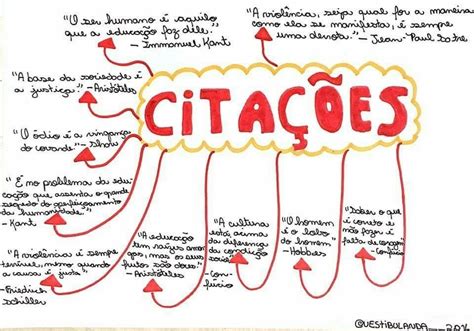 "O ser humano é aquilo
que a educação faz dele."
- Immanuel Kant
"A violência, seja qual for a maneira
como ela se manifesta, é sempre
uma derrota." - Jean-Paul Satre
"A base da sociedade é
a justiça." - Aristóteles
CITAÇÕES
"O ódio é a vingança
do covarde." - Shaw
"É no problema da edu-
cação que assenta o grande
segredo do aperfeiçoamento
da humanidade."
- Kant
"A violência é sempre
terrível, mesmo quando
a causa é justa."
- Friedrich
Schiller
"A educação
tem raízes amar-
gas, mas os seus
frutos são doces."
- Aristóteles
"A cultura
está acima
da diferença
da condição
social"
- con-
fúcio
"O homem
é o lobo
do homem"
- Hobbes
"Saber o que
é correto e
não fazer é
falta de coragem"
- Confúcio
@VESTIBULANDA